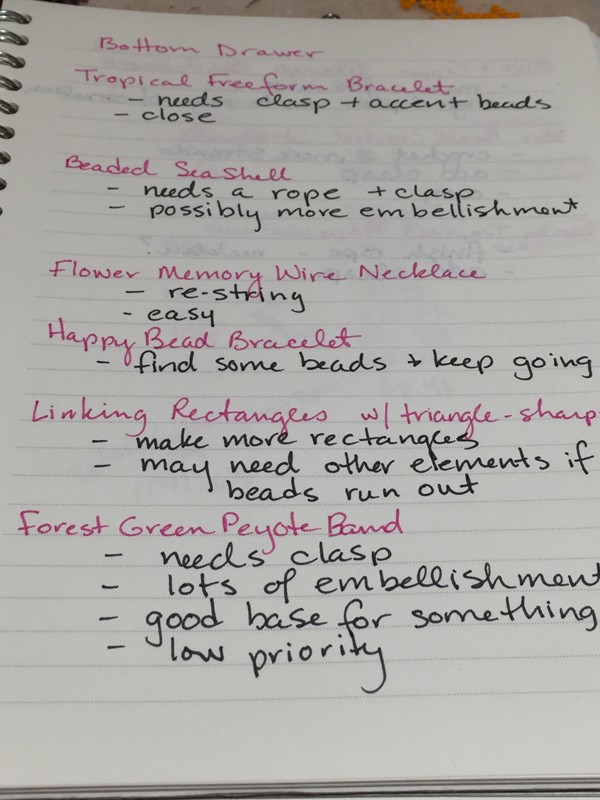 Bottom Drawer
Tropical Freeform Bracelet
- needs clasp + accent beads
- close
Beaded Sea Shell
- needs a rope + clasp
- possibly more embellishment
Flower Memory Wire Necklace
- re-string
- easy
Happy Bead Bracelet
- find some beads + keep going
Linking Rectangles w/ triangle-sharp
- make more rectangles
- may need other elements if
beads run out
Forest Green Peyote Band
- needs clasp
- lots of embellishment
- good base for something
- low priority